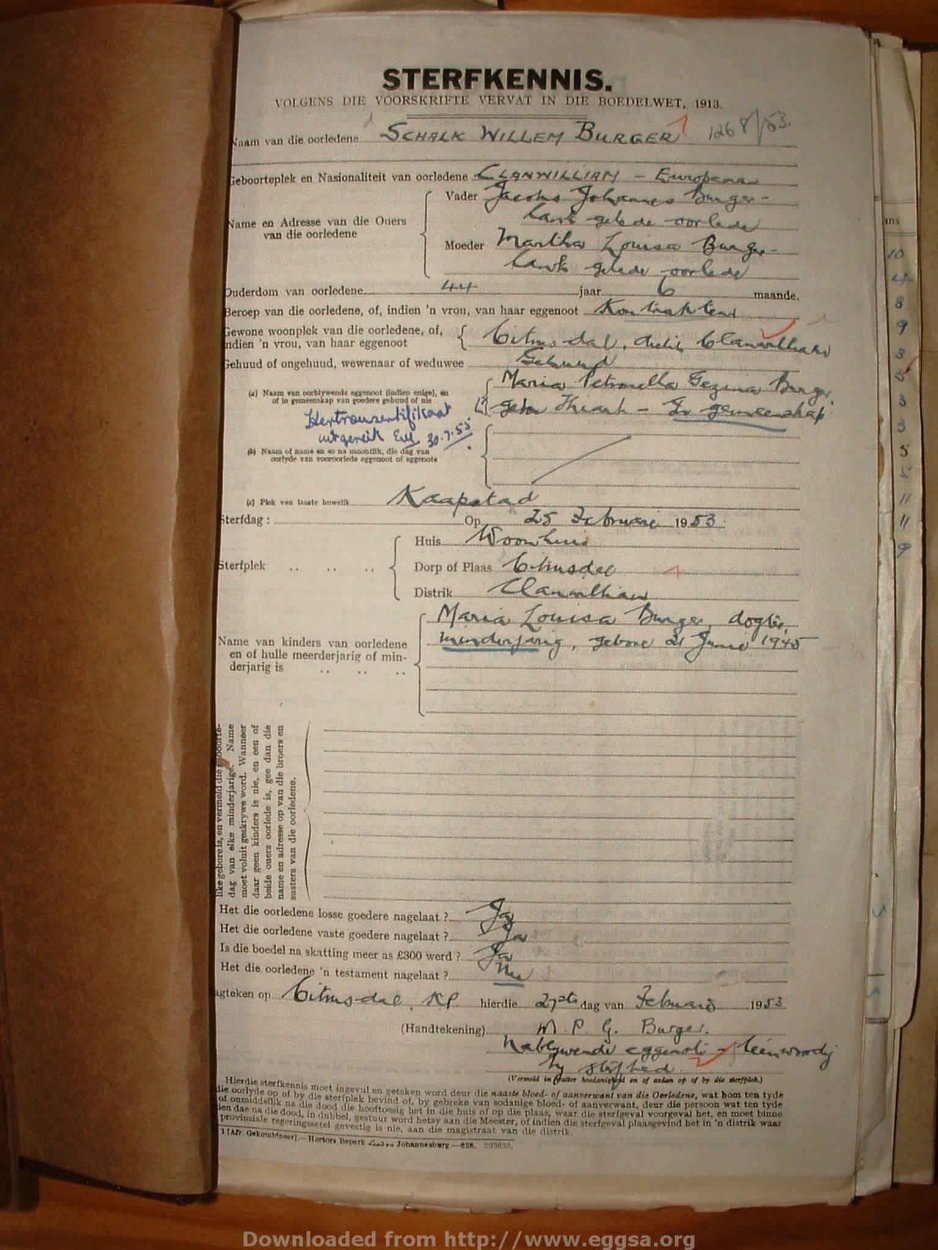 STERFKENNIS.
VOLGENS DIE VOORSKRIFTE VERVAT IN DIE BOEDELWET, 1913.
1268/53.
Naam van die oorledene SCHALK WILLEM BURGER
Geboorteplek en Nasionaliteit van oorledene CLANWILLIAM - Europeaan
Vader Jacobus Johannes Burger-
Name en Adresse van die Ouers lank gelede oorlede
van die oorledene
Moeder Martha Louisa Burger-
lank gelede oorlede
Ouderdom van oorledene 44 jaar 6 maande.
Beroep van die oorledene, of, indien 'n vrou, van haar eggenoot
Gewone woonplek van die oorledene, of, Citrusdal, distr. Clanwilliam
indien 'n vrou, van haar eggenoot
Gehuud of ongehuud, wewenaar of weduwee Gehuud
Maria Petronella Gezina Burger,
(a) Naam van oorblywende eggenoot (indien enige), en
of in gemeenskap van goedere gehuud of nie
gebore - In gemeenskap
Hertrousertifikaat
uitgereik 30.7.55
(b) Naam of name en so na moontlik, die dag van
oorlyde van vooroorlede eggenoot of eggenote
(c) Plek van laaste huwelik Kaapstad
Sterfdag: Op 25 Februarie 1953
Huis Woonhuis
Sterfplek Dorp of Plaas Citrusdal
Distrik Clanwilliam
Maria Louisa Burger, dogter,
Name van kinders van oorledene minderjarig, gebore 21 Junie 1945
en of hulle meerderjarig of min-
derjarig is
like gebore is, en vermeld die geboorte-
dag van elke minderjarige. Name
moet voluit geskrywe word. Wanneer
daar geen kinders is nie, en een of
beide ouers oorlede is, gee dan die
name en adresse op van die broers en
susters van die oorledene.
Het die oorledene losse goedere nagelaat? Ja
Het die oorledene vaste goedere nagelaat? Ja
Is die boedel na skatting meer as £300 werd? Ja
Het die oorledene 'n testament nagelaat? Nee
Citrusdal, KP hierdie 27ste dag van Februarie 1953
(Handtekening) M. P. G. Burger.
Nablywende eggenote - teenwoordig
by sterfbed.
Hierdie sterfkennis moet ingevul en geteken word deur die naaste bloed- of aanverwant van die Oorledene, wat ten tyde
die oorlyde op of by die sterfplek bevind of, by gebreke van sodanige bloed- of aanverwant, deur die persoon wat ten tyde
of onmiddellik na die dood die hooftoesig het in die huis of op die plaas, waar die sterfgeval voorgeval het, en moet binne
dae na die dood, in dubbel, gestuur word hetsy aan die Meester, of indien die sterfgeval plaasgevind het in 'n distrik waar
provinsiale regeringssetel gevestig is nie, aan die magistraat van die distrik.
ans
10
4
8
9
3
5
3
3
5
5
11
11
9
Downloaded from http://www.eggsa.org